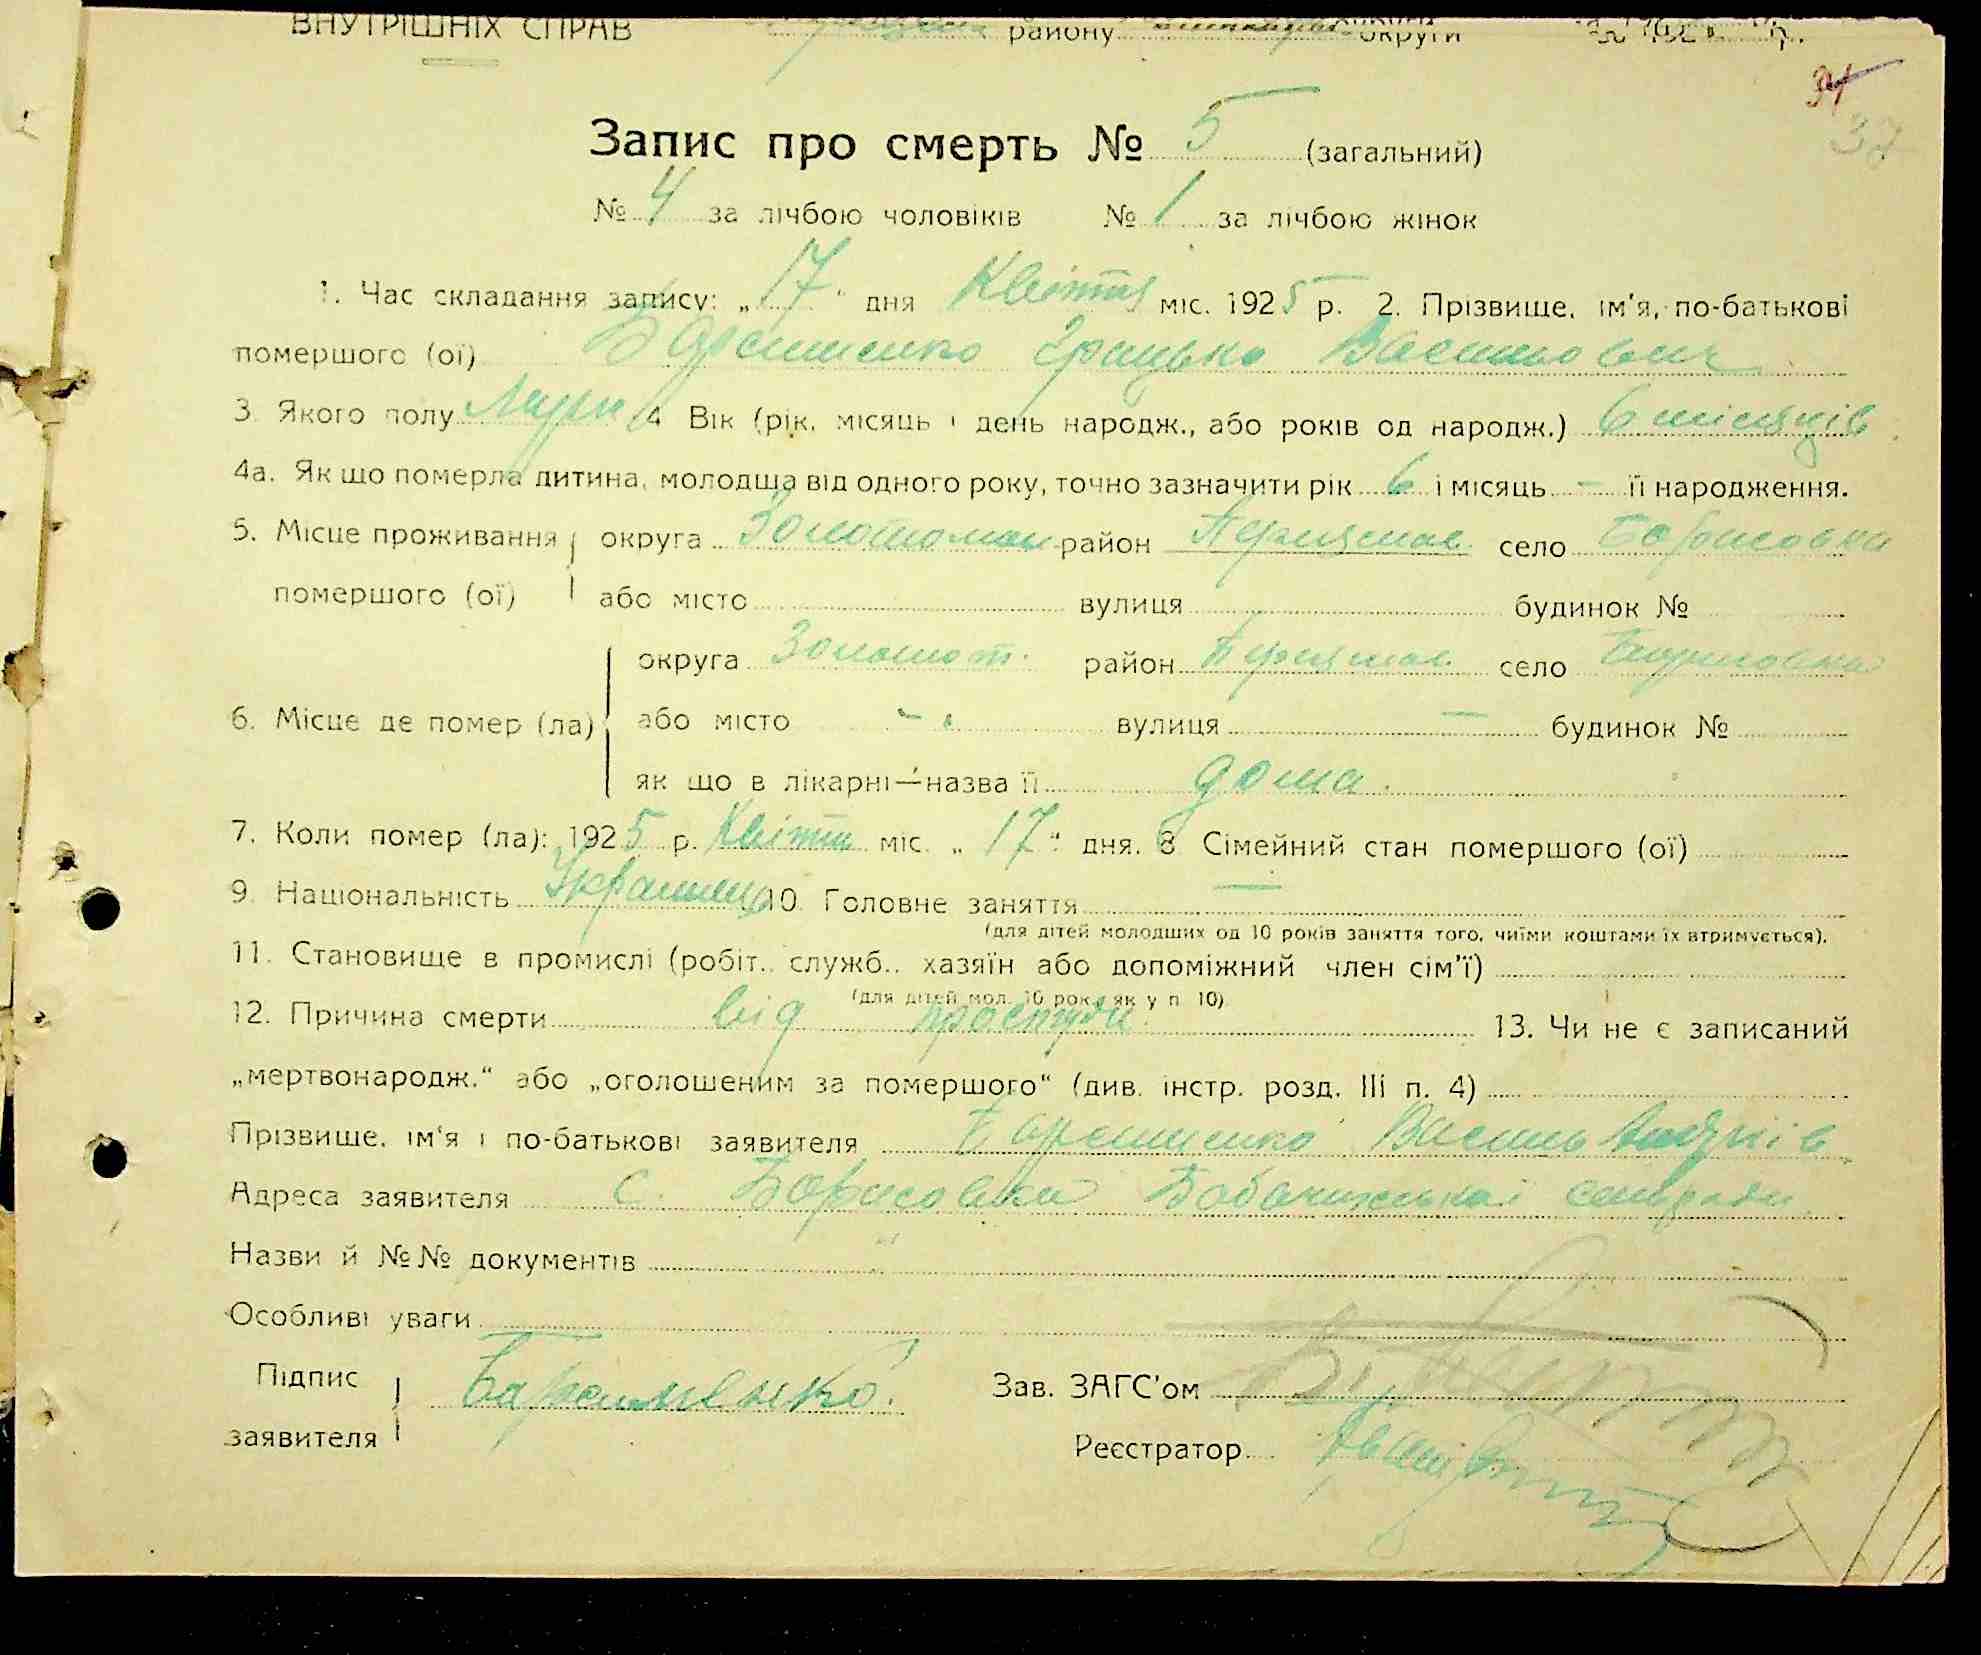 ВНУТРІШНІХ СПРАВ району округи 192 р.
37
Запис про смерть № 5 (загальний)
№ 4 за лічбою чоловіків № 1 за лічбою жінок
1. Час складання запису: „17“ дня Квітня міс. 1925 р. 2. Прізвище, ім'я, по-батькові
помершого (ої) Грицько Васильович
3. Якого полу Муж 4 Вік (рік, місяць і день народж., або років од народж.) 6 місяців
4а. Як що померла дитина, молодща від одного року, точно зазначити рік 6 і місяць – її народження.
5. Місце проживання округа Золотоман район Переяслав село Борисовка
помершого (ої) або місто вулиця будинок №
округа Золотот. район Переяслав село Борисовка
6. Місце де помер (ла) або місто – вулиця – будинок №
як що в лікарні—назва її дома.
7. Коли помер (ла): 1925 р. Квітня міс. „17“ дня. 8 Сімейний стан помершого (ої)
9. Національність Українець 10. Головне заняття —
(для дітей молодших од 10 років заняття того, чиїми коштами їх втримується).
11. Становище в промислі (робіт., служб., хазяїн або допоміжний член сім'ї)
(для дітей мол. 10 рок. як у п 10).
12. Причина смерти від простуди 13. Чи не є записаний
„мертвонародж.“ або „оголошеним за помершого“ (див. інстр. розд. III п. 4)
Прізвище, ім'я і по-батькові заявителя Василь
Адреса заявителя с. Борисовка сельради
Назви й №№ документів
Особливі уваги
Підпис
заявителя
Зав. ЗАГС'ом
Реєстратор